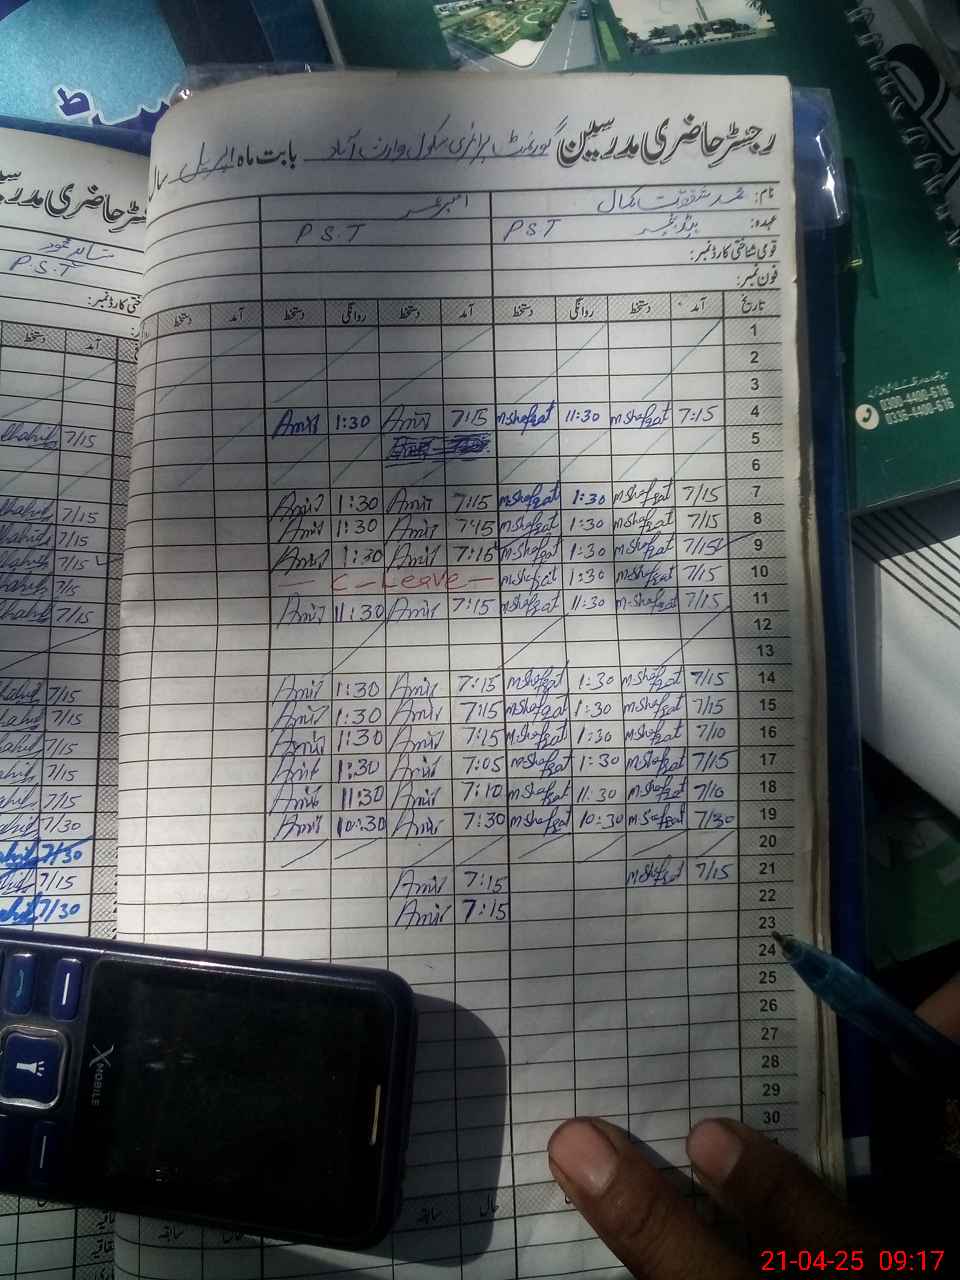 رجسٹر حاضری مدرسین گورنمنٹ پرائمری سکول وارث آباد بابت ماہ اپریل سال
نام: محمد شفقت کمال
عہدہ: ہیڈ ٹیچر PST P.S.T
قومی شناختی کارڈ نمبر:
فون نمبر:
تاریخ آمد دستخط روانگی دستخط آمد دستخط روانگی دستخط آمد دستخط
1
2
3
4 7:15 m.shafqat 11:30 m.shafqat 7:15 Amir 1:30 Amir
5
6
7 7/15 m.shafqat 1:30 m.shafqat 7:15 Amir 1:30 Amir
8 7/15 m.shafqat 1:30 m.shafqat 7:15 Amir 1:30 Amir
9 7/15 m.shafqat 1:30 m.shafqat 7:15 Amir 1:30 Amir
10 7/15 m.shafqat 1:30 m.shafqat — C - Leave —
11 7/15 m.shafqat 11:30 m.shafqat 7:15 Amir 11:30 Amir
12
13
14 7/15 m.shafqat 1:30 m.shafqat 7:15 Amir 1:30 Amir
15 7/15 m.shafqat 1:30 m.shafqat 7:15 Amir 1:30 Amir
16 7/10 m.shafqat 1:30 m.shafqat 7:15 Amir 1:30 Amir
17 7/15 m.shafqat 1:30 m.shafqat 7:05 Amir 1:30 Amir
18 7/10 m.shafqat 11:30 m.shafqat 7:10 Amir 11:30 Amir
19 7/30 m.shafqat 10:30 m.shafqat 7:30 Amir 10:30 Amir
20
21 7/15 m.shafqat 7:15 Amir
22 7:15 Amir
23
24
25
26
27
28
29
30
حال سابقہ سابقہ
رجسٹر حاضری مدرسین
شاہد محمود
P.S.T
آمد دستخط
7/15 Shahid
7/15 Shahid
7/15 Shahid
7/15 Shahid
7/15 Shahid
7/15 Shahid
7/15 Shahid
7/15 Shahid
7/15 Shahid
7/15 Shahid
7/15 Shahid
7/30 Shahid
7/30 Shahid
7/15 Shahid
7/30 Shahid
0300-4400-616
0335-4400-616
X MOBILE
21-04-25 09:17